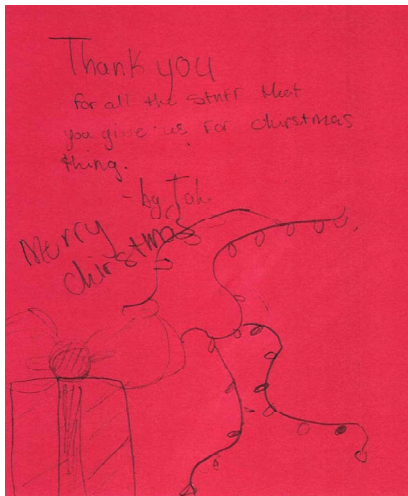 Thank you
for all the stntf that
you give us for chirstmas
thing.
- by Jak
Merry
chirstmas